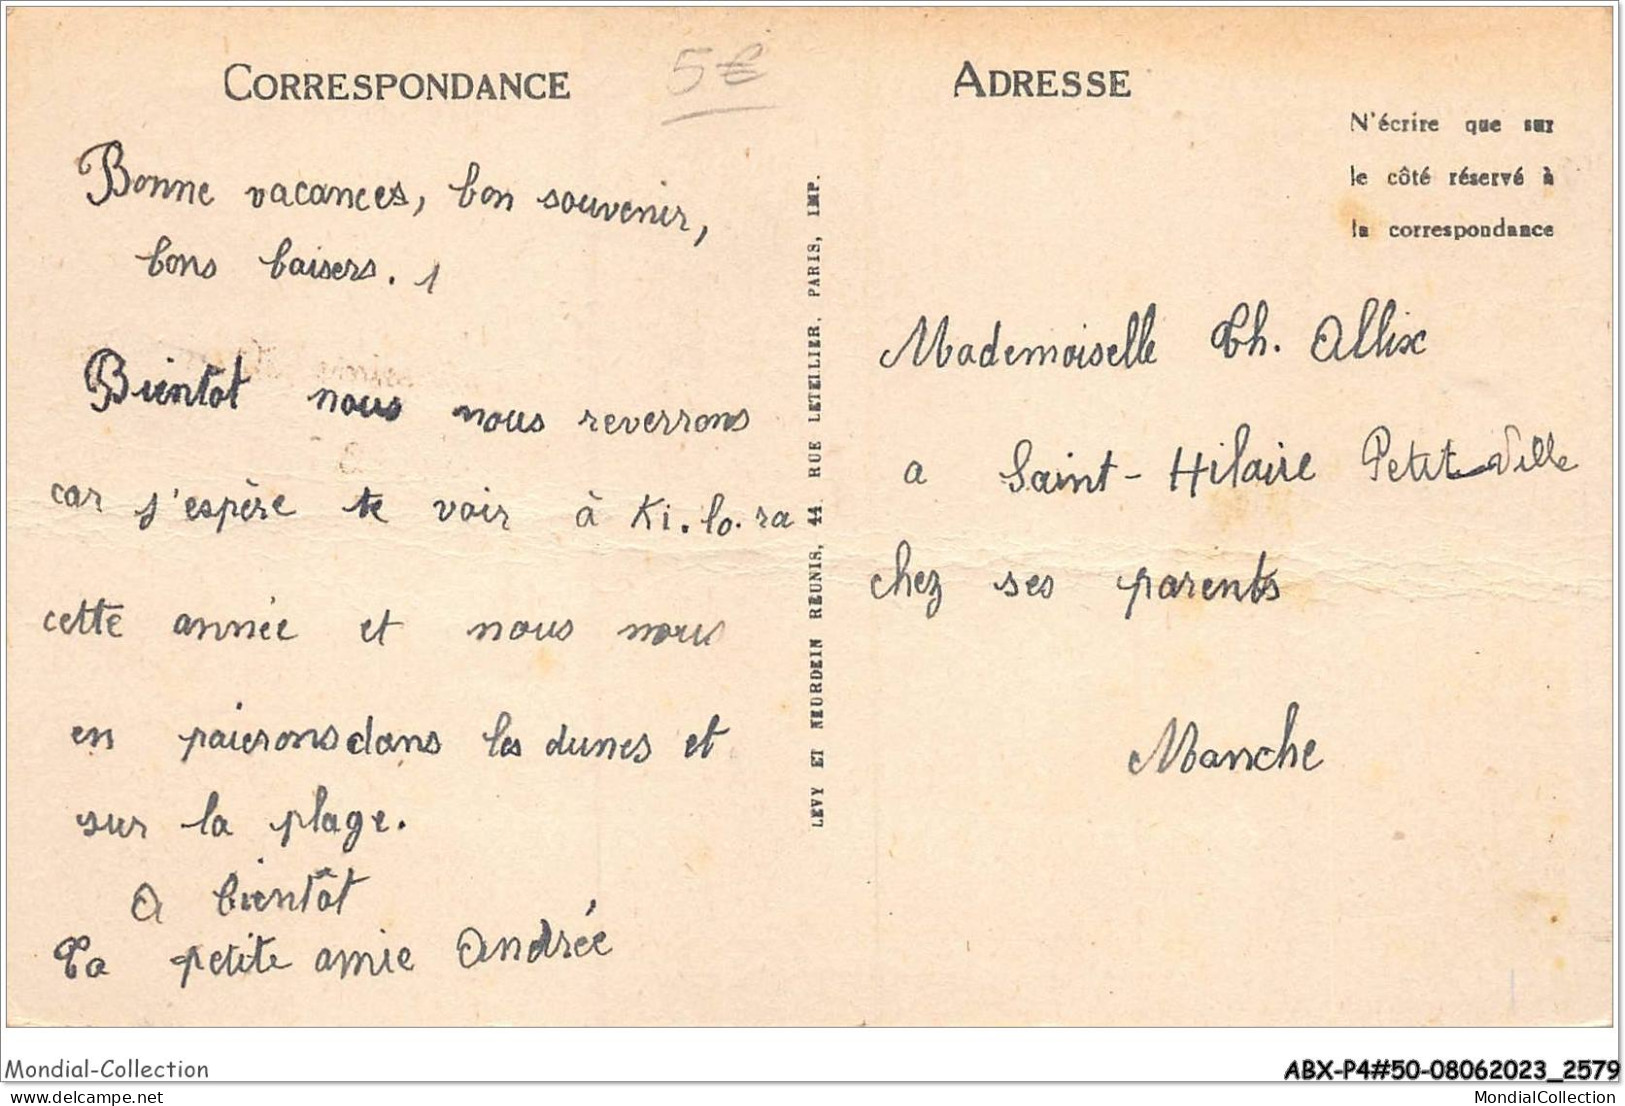 CORRESPONDANCE
5€
Bonne vacances, bon souvenir,
bons baisers.
Bientot nous nous reverrons
car j'espère te voir à Ki.lo.ra
cette année et nous nous
en paierons dans les dunes et
sur la plage.
A bientôt
Ta petite amie Andrée
LEVY ET NEURDEIN RÉUNIS, 44. RUE LETELLIER. PARIS, IMP.
ADRESSE
N'écrire que sur
le côté réservé à
la correspondance
Mademoiselle Th. Allix
a Saint-Hilaire Petit-Ville
chez ses parents
Manche
Mondial-Collection
ABX-P4#50-08062023_2579
delcampe.net
MondialCollection